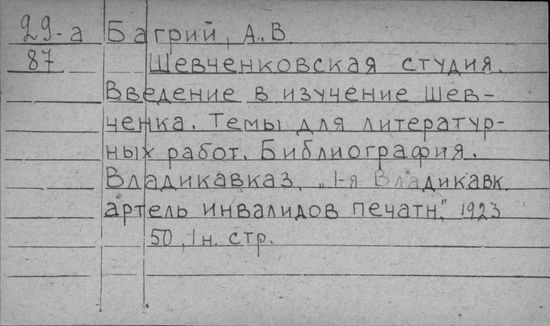 29-а Багрий, А.В.
87 Шевченковская студия.
Введение в изучение Шев-
ченка. Темы для литератур-
ных работ. Библиография.
Владикавказ, "1-я Владикавк.
артель инвалидов печатн.", 1923
50, 1 н. стр.